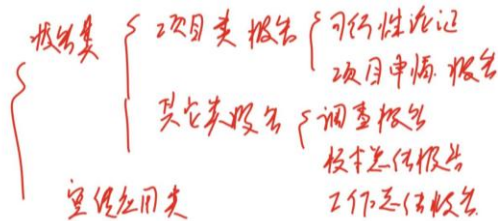 报告类 项目类报告 可行性论证
项目申请报告
其它类报告 调查报告
技术总结报告
工作总结报告
宣传应用类